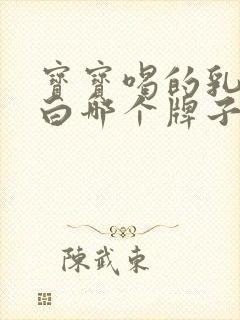 寶寶喝的乳
白哪个牌子
陳武東